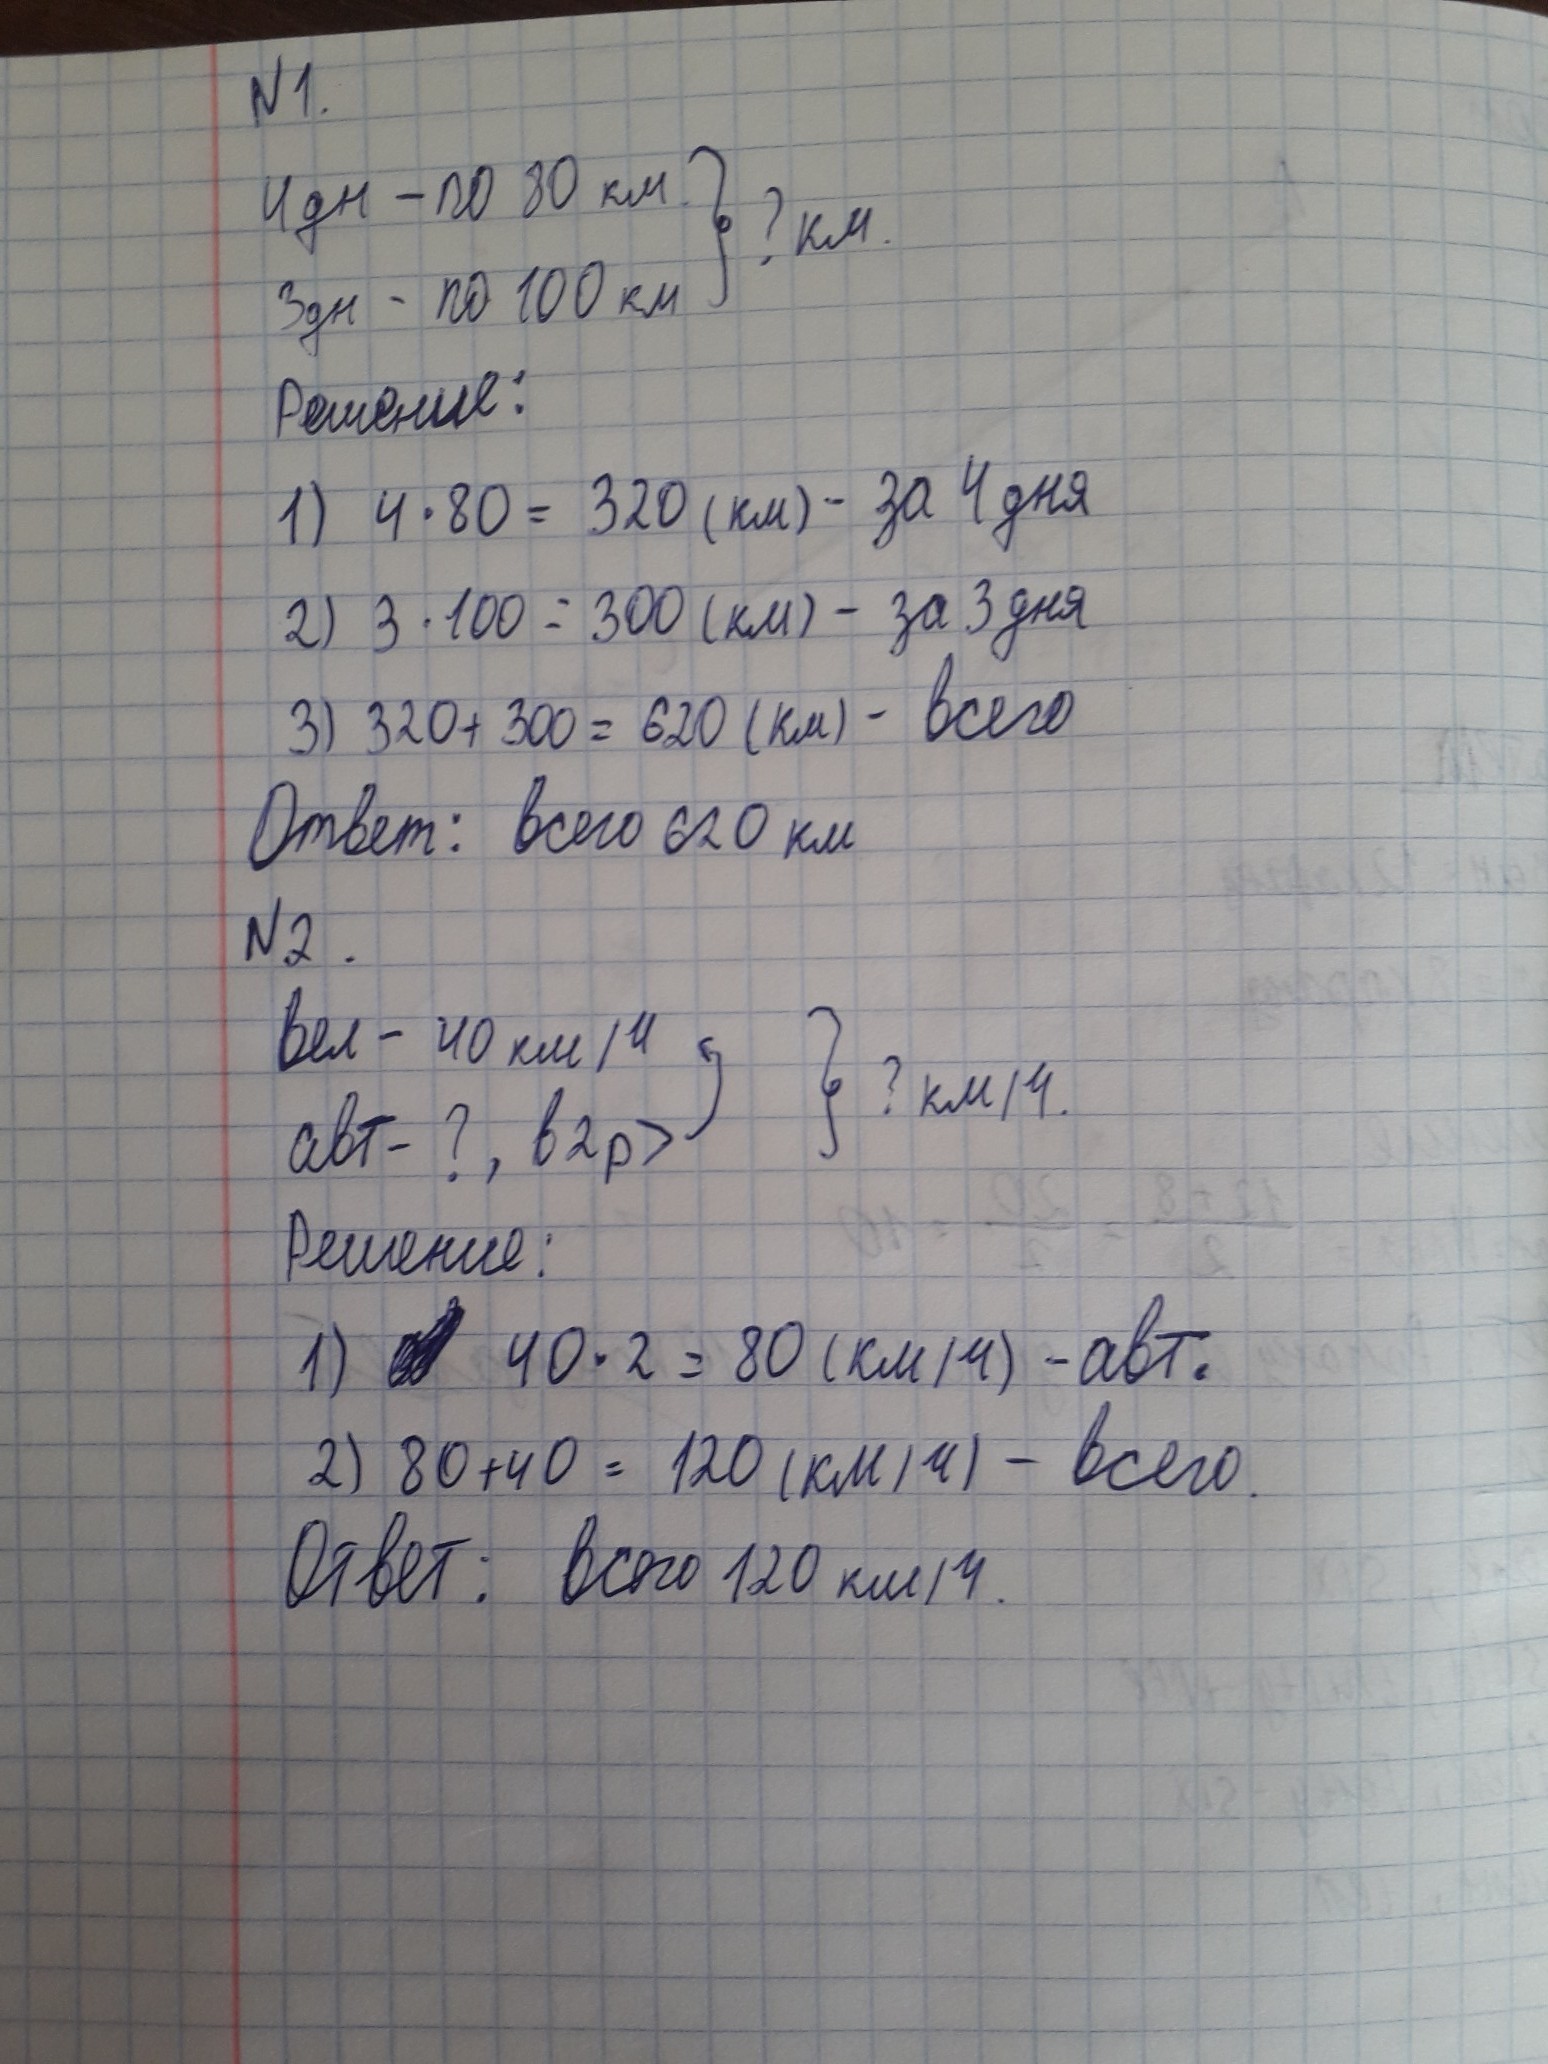 N1.
4дн - по 80 км
3дн - по 100 км
? км.
Решение:
1) 4·80 = 320 (км) - за 4 дня
2) 3·100 = 300 (км) - за 3 дня
3) 320+300 = 620 (км) - всего
Ответ: всего 620 км
N2.
Вел - 40 км/ч
авт - ?, в 2р >
? км/ч.
Решение:
1) 40·2 = 80 (км/ч) - авт.
2) 80+40 = 120 (км/ч) - всего.
Ответ: всего 120 км/ч.